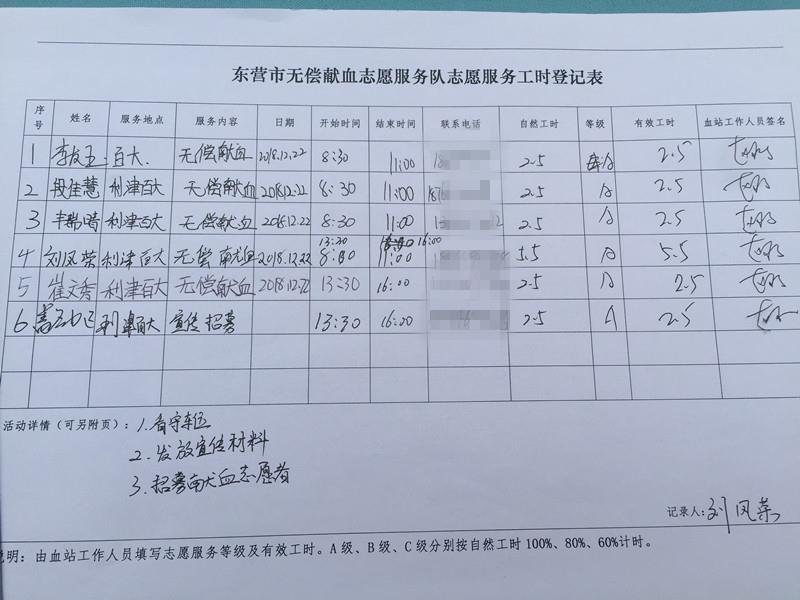 东营市无偿献血志愿服务队志愿服务工时登记表
序号 姓名 服务地点 服务内容 日期 开始时间 结束时间 联系电话 自然工时 等级 有效工时 血站工作人员签名
1 百大. 无偿献血 2018.12.22 8:30 11:00 2.5 A 2.5
2 段佳慧 利津百大 无偿献血 2018.12.22 8:30 11:00 2.5 A 2.5
3 利津百大 无偿献血 2018.12.22 8:30 11:00 2.5 A 2.5
13:30 16:00
4 刘凤荣 利津百大 无偿献血 2018.12.22 8:30 11:00 5.5 A 5.5
5 崔文秀 利津百大 无偿献血 2018.12.22 13:30 16:00 2.5 A 2.5
6 利津百大 宣传招募 13:30 16:00 2.5 A 2.5
活动详情（可另附页）：1.看守车位
2.发放宣传材料
3.招募献血志愿者
记录人：刘凤荣
说明：由血站工作人员填写志愿服务等级及有效工时。A 级、B 级、C 级分别按自然工时 100%、80%、60%计时。